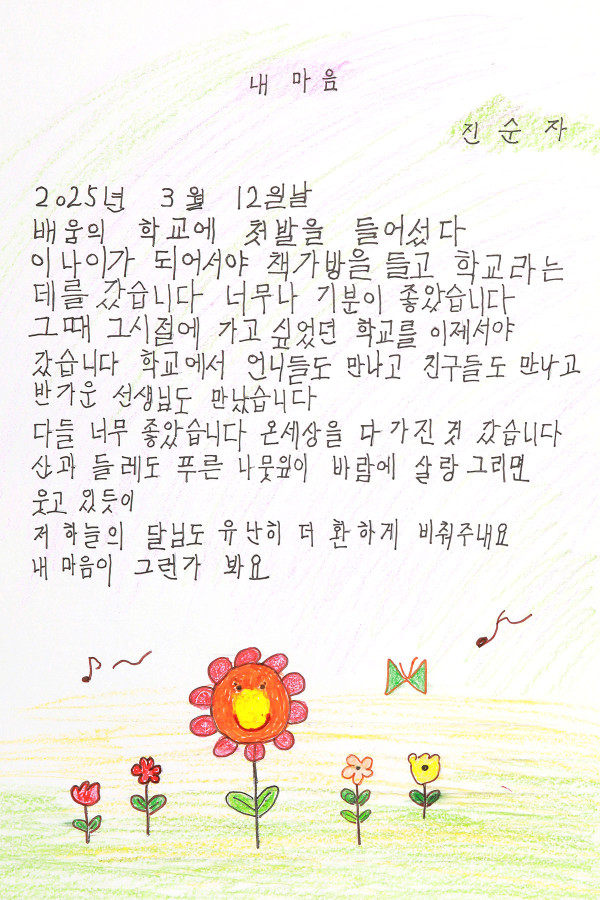 내 마음
진 순 자
2025년 3월 12일날
배움의 학교에 첫발을 들어섰다
이 나이가 되어서야 책가방을 들고 학교라는
데를 갔습니다 너무나 기분이 좋았습니다
그때 그시절에 가고 싶었던 학교를 이제서야
갔습니다 학교에서 언니들도 만나고 친구들도 만나고
반가운 선생님도 만났습니다
다들 너무 좋았습니다 온세상을 다 가진것 같습니다
산과 들레도 푸른 나뭇잎이 바람에 살랑그리면
웃고 있듯이
저 하늘의 달님도 유난히 더 환하게 비춰주내요
내 마음이 그런가 봐요